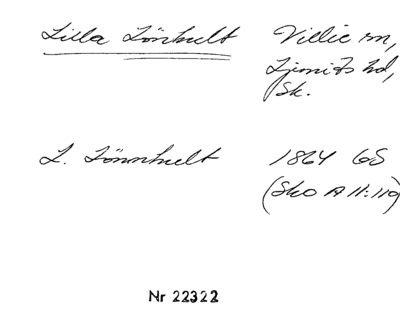 Lilla Lönhult Villie sn,
Ljunits hd,
Sk.
L. Lönnhult 1864 GS
(Sko A II:119)
Nr 22322